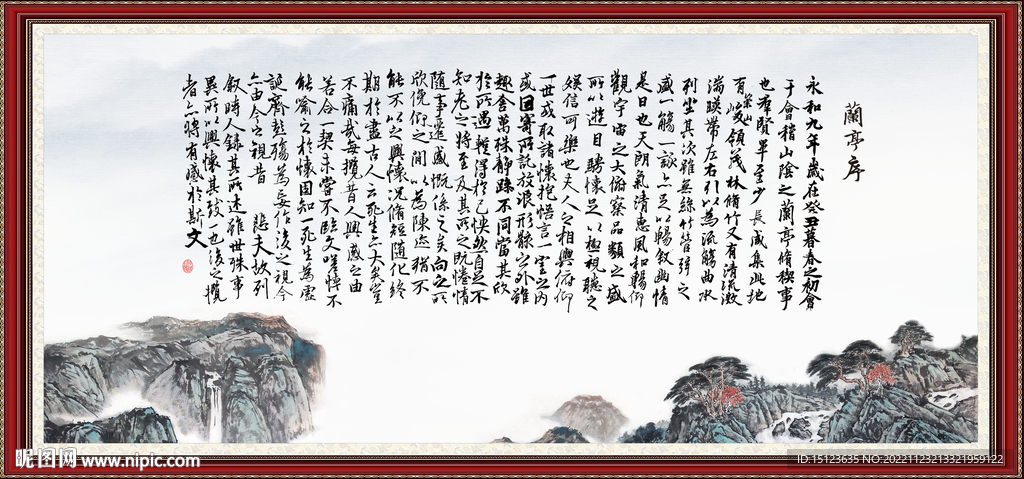 蘭亭序
永和九年歲在癸丑暮春之初會
于會稽山陰之蘭亭脩稧事
也羣賢畢至少長咸集此地
有崇山峻領茂林脩竹又有清流激
湍暎帶左右引以為流觴曲水
列坐其次雖無絲竹管弦之
盛一觴一詠亦足以暢敘幽情
是日也天朗氣清惠風和暢仰
觀宇宙之大俯察品類之盛
所以遊目騁懷足以極視聽之
娛信可樂也夫人之相與俯仰
一世或取諸懷抱悟言一室之內
或因寄所託放浪形骸之外雖
趣舍萬殊靜躁不同當其欣
於所遇暫得於己怏然自足不
知老之將至及其所之既惓情
隨事遷感慨係之矣向之所
欣俛仰之間以為陳迹猶不
能不以之興懷況脩短隨化終
期於盡古人云死生亦大矣豈
不痛哉每攬昔人興感之由
若合一契未嘗不臨文嗟悼不
能喻之於懷固知一死生為虛
誕齊彭殤為妄作後之視今
亦由今之視昔 悲夫故列
敘時人錄其所述雖世殊事
異所以興懷其致一也後之攬
者亦將有感於斯文
昵图网 www.nipic.com
ID:15123635 NO:20221123213321959122